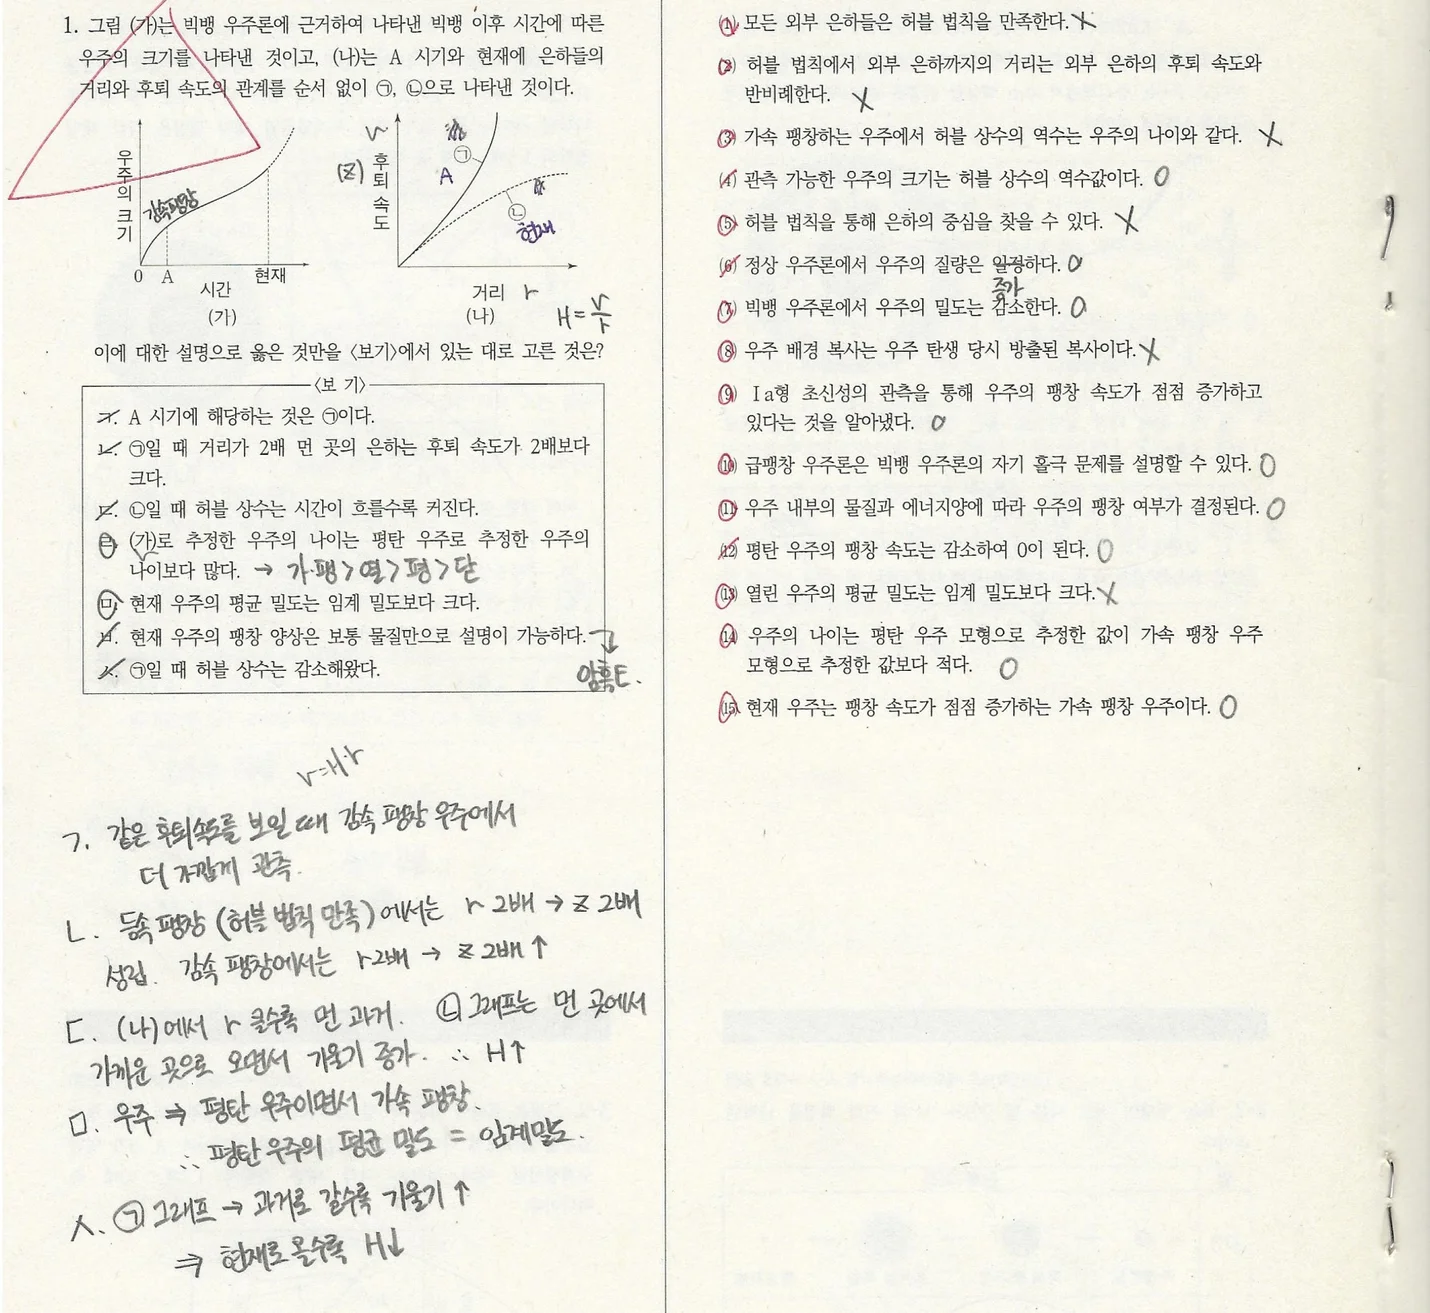 1. 그림 (가)는 빅뱅 우주론에 근거하여 나타낸 빅뱅 이후 시간에 따른
우주의 크기를 나타낸 것이고, (나)는 A 시기와 현재에 은하들의
거리와 후퇴 속도의 관계를 순서 없이 ㉠, ㉡으로 나타낸 것이다.
우주의 크기
감속팽창
0 A 현재
시간
(가)
v
(z)
후퇴 속도
㉠
A
㉡
현재
거리 r
(나)
H = v/r
이에 대한 설명으로 옳은 것만을 <보기>에서 있는 대로 고른 것은?
<보 기>
ㄱ. A 시기에 해당하는 것은 ㉠이다.
ㄴ. ㉠일 때 거리가 2배 먼 곳의 은하는 후퇴 속도가 2배보다
크다.
ㄷ. ㉡일 때 허블 상수는 시간이 흐를수록 커진다.
ㄹ. (가)로 추정한 우주의 나이는 평탄 우주로 추정한 우주의
나이보다 많다. → 가·팽>열>평>닫
ㅁ. 현재 우주의 평균 밀도는 임계 밀도보다 크다.
ㅂ. 현재 우주의 팽창 양상은 보통 물질만으로 설명이 가능하다.
암흑E.
ㅅ. ㉠일 때 허블 상수는 감소해왔다.
v=H·r
ㄱ. 같은 후퇴속도를 보일 때 감속 팽창 우주에서
더 가깝게 관측.
ㄴ. 등속 팽창 (허블 법칙 만족)에서는 r 2배 → z 2배
성립. 감속 팽창에서는 r2배 → z 2배↑
ㄷ. (나)에서 r 클수록 먼 과거. ㉡그래프는 먼 곳에서
가까운 곳으로 오면서 기울기 증가. ∴ H↑
ㅁ. 우주 ⇒ 평탄 우주이면서 가속 팽창.
∴ 평탄 우주의 평균 밀도 = 임계밀도.
ㅅ. ㉠그래프 → 과거로 갈수록 기울기↑
⇒ 현재로 올수록 H↓
(1) 모든 외부 은하들은 허블 법칙을 만족한다. X
(2) 허블 법칙에서 외부 은하까지의 거리는 외부 은하의 후퇴 속도와
반비례한다. X
(3) 가속 팽창하는 우주에서 허블 상수의 역수는 우주의 나이와 같다. X
(4) 관측 가능한 우주의 크기는 허블 상수의 역수값이다. O
(5) 허블 법칙을 통해 은하의 중심을 찾을 수 있다. X
(6) 정상 우주론에서 우주의 질량은 일정하다. O
증가
(7) 빅뱅 우주론에서 우주의 밀도는 감소한다. O
(8) 우주 배경 복사는 우주 탄생 당시 방출된 복사이다. X
(9) Ⅰa형 초신성의 관측을 통해 우주의 팽창 속도가 점점 증가하고
있다는 것을 알아냈다. O
(10) 급팽창 우주론은 빅뱅 우주론의 자기 홀극 문제를 설명할 수 있다. O
(11) 우주 내부의 물질과 에너지양에 따라 우주의 팽창 여부가 결정된다. O
(12) 평탄 우주의 팽창 속도는 감소하여 0이 된다. O
(13) 열린 우주의 평균 밀도는 임계 밀도보다 크다. X
(14) 우주의 나이는 평탄 우주 모형으로 추정한 값이 가속 팽창 우주
모형으로 추정한 값보다 적다. O
(15) 현재 우주는 팽창 속도가 점점 증가하는 가속 팽창 우주이다. O